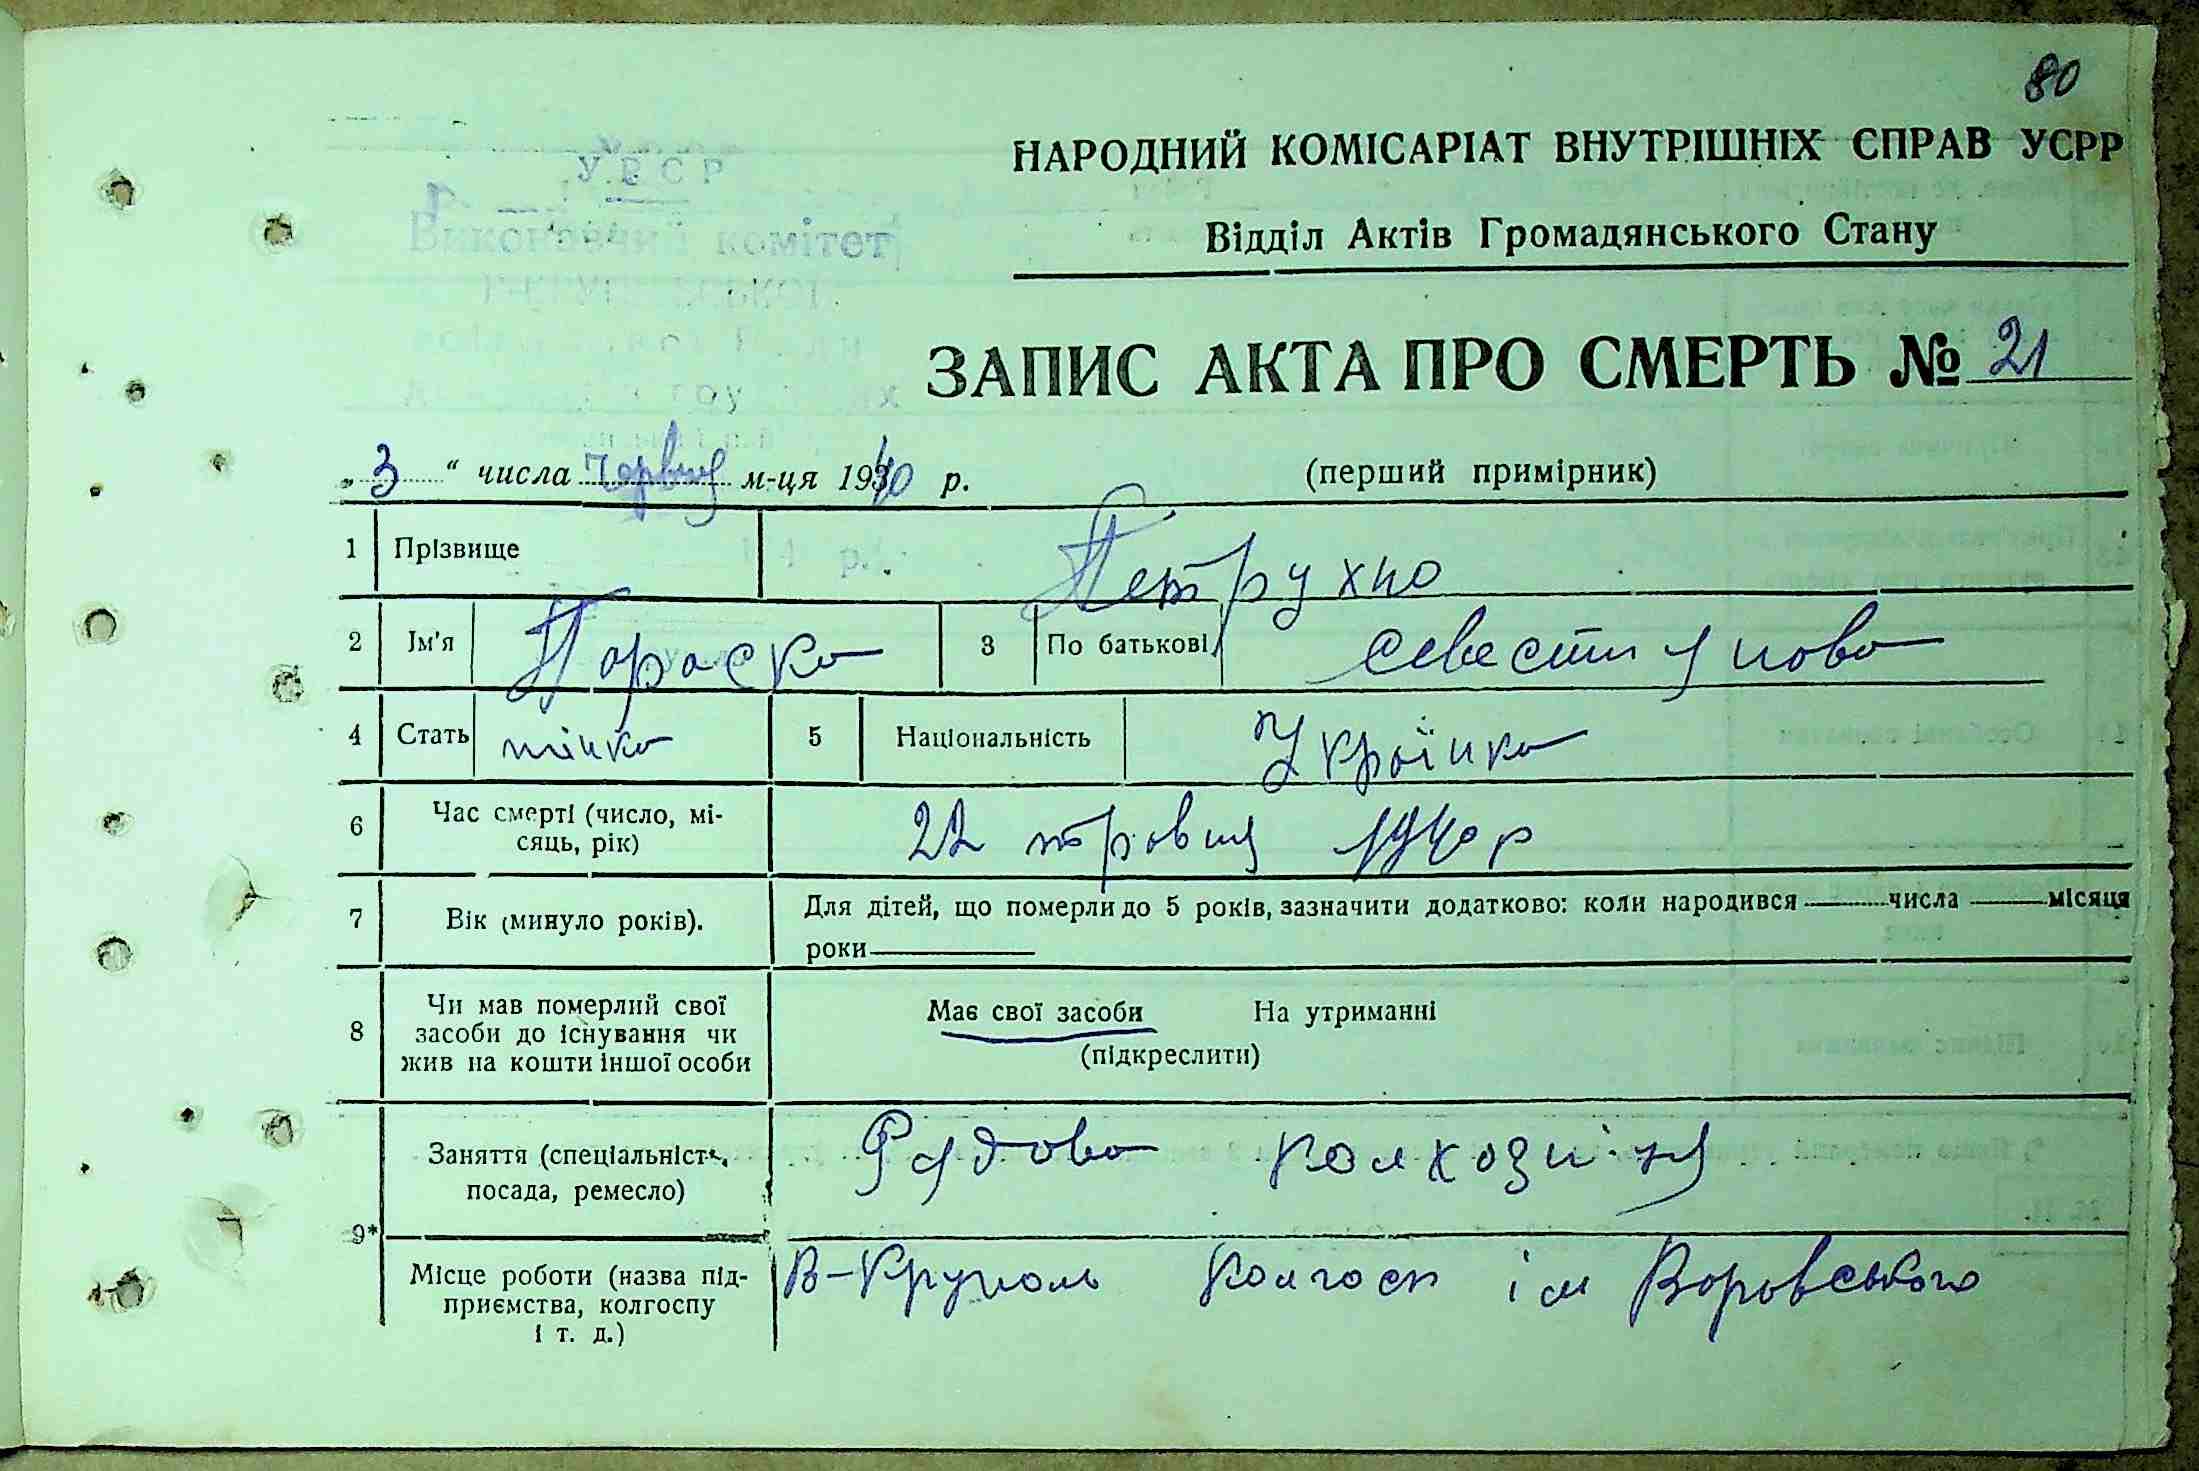 80
НАРОДНИЙ КОМІСАРІАТ ВНУТРІШНІХ СПРАВ УСРР
Відділ Актів Громадянського Стану
УРСР
Виконавчий комітет
ЗАПИС АКТА ПРО СМЕРТЬ № 21
„ 3 “ числа червня м-ця 1940 р. (перший примірник)
1 Прізвище Петрухно
2 Ім'я Параска 3 По батькові Севестіянова
4 Стать жінка 5 Національність Українка
6 Час смерті (число, мі-
сяць, рік) 22 травня 1940 р
7 Вік (минуло років). Для дітей, що померли до 5 років, зазначити додатково: коли народився — числа — місяця
роки
8 Чи мав померлий свої
засоби до існування чи
жив на кошти іншої особи
Має свої засоби На утриманні
(підкреслити)
9* Заняття (спеціальність,
посада, ремесло) Рядова колхозніця
Місце роботи (назва під-
приємства, колгоспу
і т. д.) В-Круполь Колгосп ім Воровського